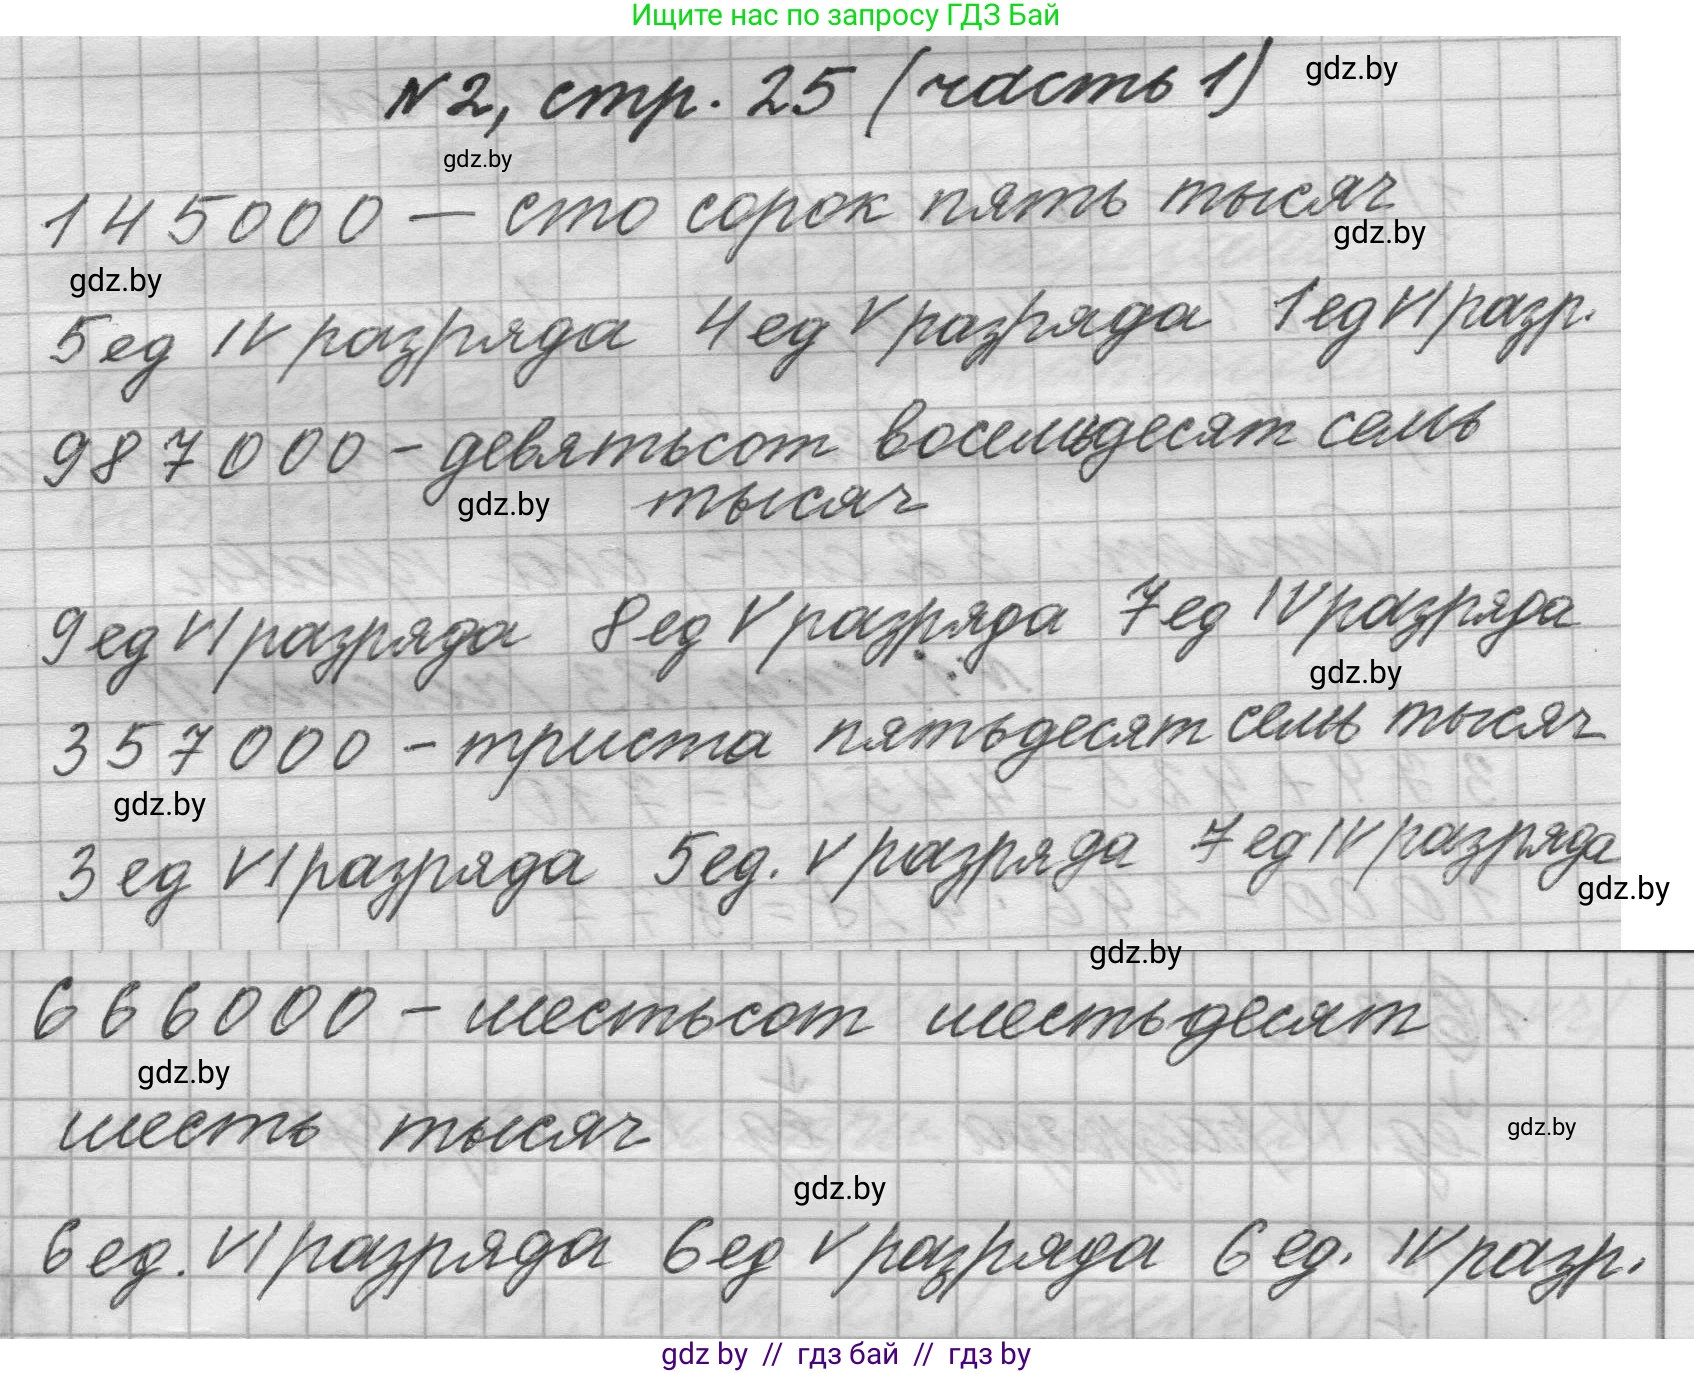 Ищите нас по запросу ГДЗ Бай
№2, стр. 25 (часть 1)
gdz.by
gdz.by
145000 — сто сорок пять тысяч
gdz.by
gdz.by
5ед IV разряда 4ед V разряда 1ед VI разр.
987000 - девятьсот восемьдесят семь
gdz.by
тысяч
9ед VI разряда 8ед V разряда 7ед IV разряда
gdz.by
357000 - триста пятьдесят семь тысяч
gdz.by
3ед VI разряда 5ед. V разряда 7ед IV разряда
gdz.by
gdz.by
666000 - шестьсот шестьдесят
gdz.by
шесть тысяч
gdz.by
gdz.by
6ед. VI разряда 6ед V разряда 6ед. IV разр.
gdz by // гдз бай // гдз by